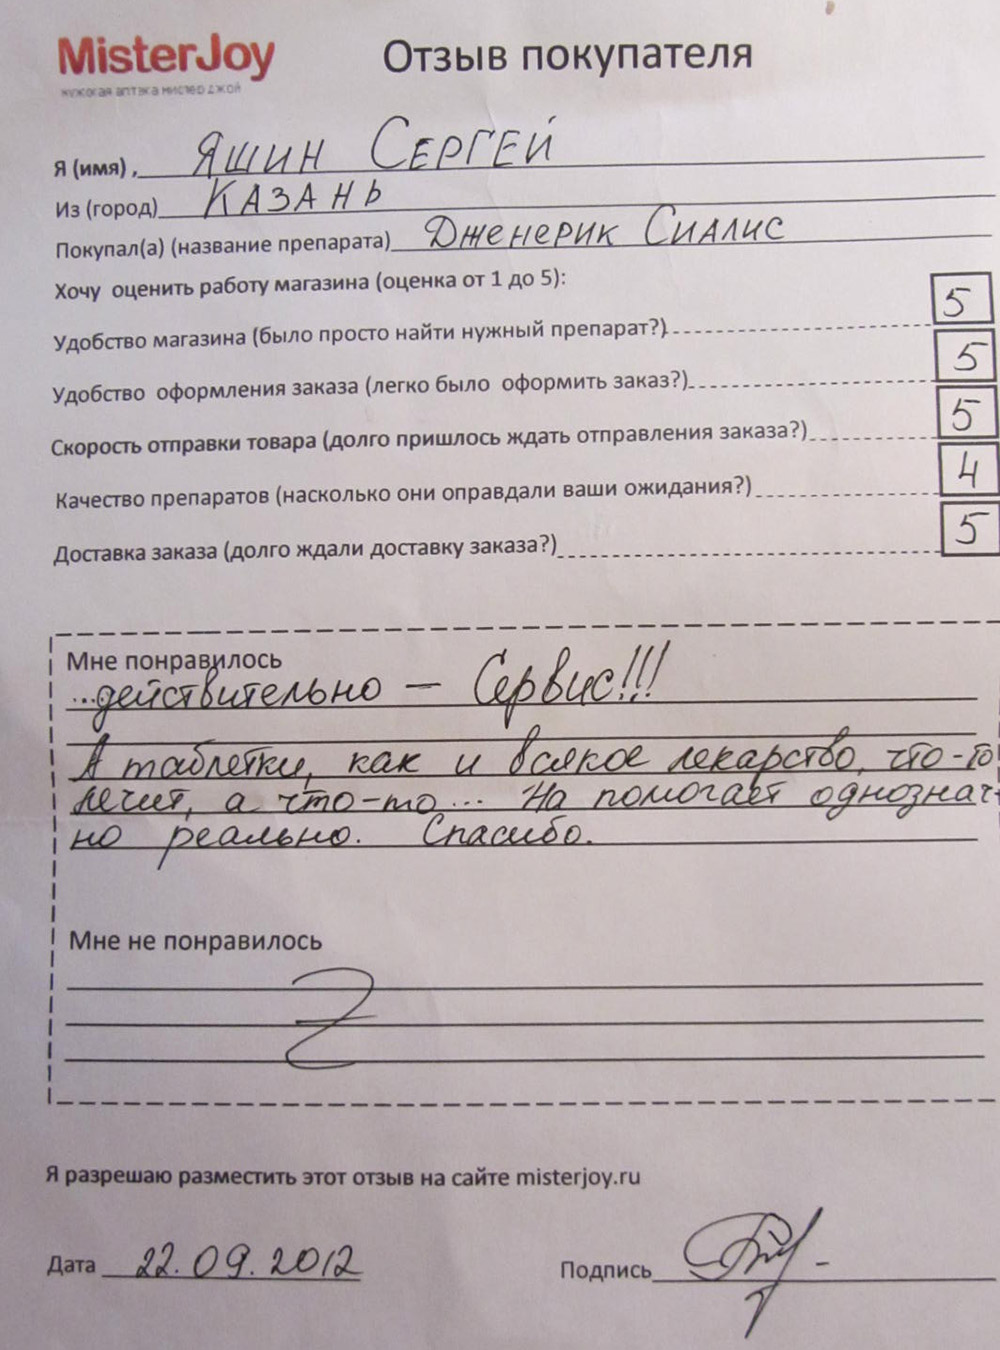 MisterJoy
мужская аптека мистер джой
Отзыв покупателя
Я (имя), Яшин Сергей
Из (город) Казань
Покупал(а) (название препарата) Дженерик Сиалис
Хочу оценить работу магазина (оценка от 1 до 5):
Удобство магазина (было просто найти нужный препарат?) 5
Удобство оформления заказа (легко было оформить заказ?) 5
Скорость отправки товара (долго пришлось ждать отправления заказа?) 5
Качество препаратов (насколько они оправдали ваши ожидания?) 4
Доставка заказа (долго ждали доставку заказа?) 5
Мне понравилось
...действительно — Сервис!!!
А таблетки, как и всякое лекарство, что-то
лечит, а что-то... На помогает однознач-
но реально. Спасибо.
Мне не понравилось
Я разрешаю разместить этот отзыв на сайте misterjoy.ru
Дата 22.09.2012
Подпись